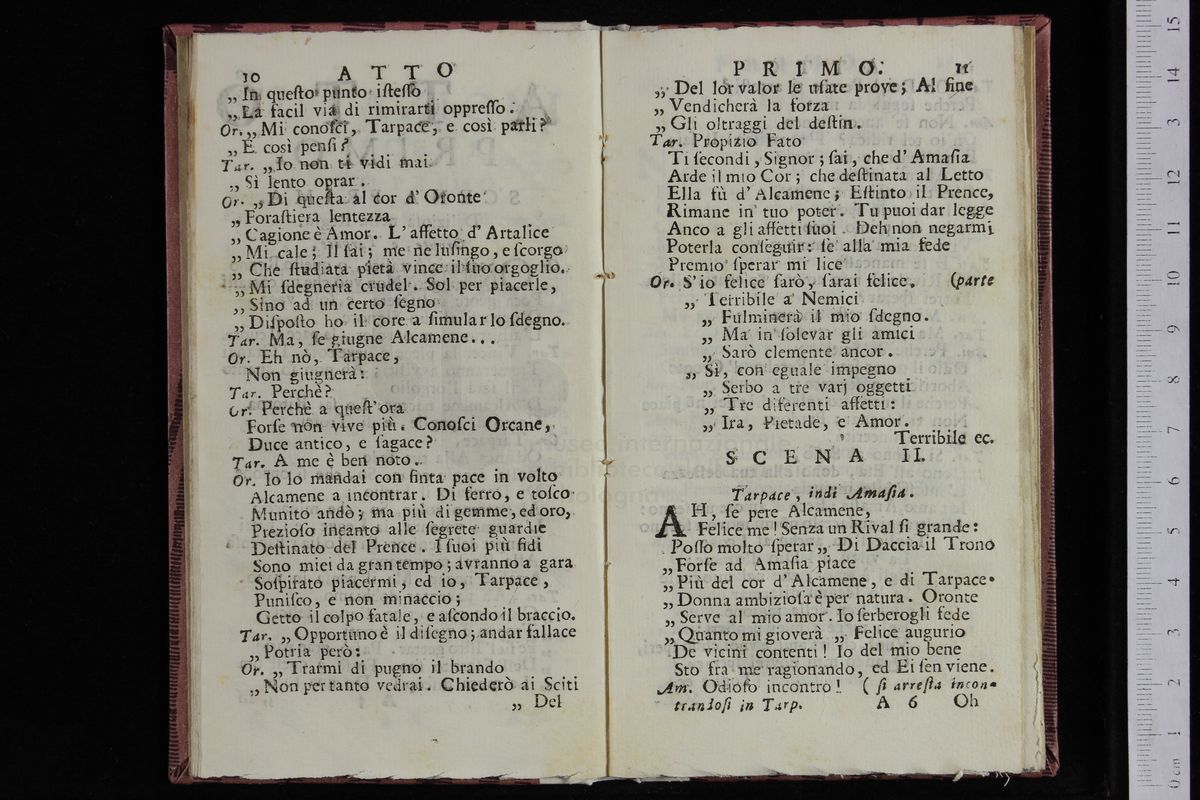 10 ATTO
„ In questo punto istesso
„ La facil via di rimirarti oppresso.
Or. „ Mi conosci, Tarpace, e così parli?
„ E così pensi?
Tar. „ Io non ti vidi mai
„ Sì lento oprar.
Or. „ Di questa al cor d'Oronte
„ Forastiera lentezza
„ Cagione è Amor. L'affetto d'Artalice
„ Mi cale; Il sai; me ne lusingo, e scorgo
„ Che studiata pietà vince il suo orgoglio.
„ Mi sdegneria crudel. Sol per piacerle,
„ Sino ad un certo segno
„ Disposto ho il core a simular lo sdegno.
Tar. Ma, se giugne Alcamene...
Or. Eh nò, Tarpace,
Non giugnerà:
Tar. Perchè?
Or. Perchè a quest'ora
Forse non vive più. Conosci Orcane,
Duce antico, e sagace?
Tar. A me è ben noto.
Or. Io lo mandai con finta pace in volto
Alcamene a incontrar. Di ferro, e tosco
Munito andò; ma più di gemme, ed oro,
Prezioso incanto alle segrete guardie
Destinato del Prence. I suoi più fidi
Sono miei da gran tempo; avranno a gara
Sospirato piacermi, ed io, Tarpace,
Punisco, e non minaccio;
Getto il colpo fatale, e ascondo il braccio.
Tar. „ Opportuno è il disegno; andar fallace
„ Potria però:
Or. „ Trarmi di pugno il brando
„ Non per tanto vedrai. Chiederò ai Sciti
„ Del
PRIMO. 11
„ Del lor valor le usate prove; Al fine
„ Vendicherà la forza
„ Gli oltraggi del destin.
Tar. Propizio Fato
Ti secondi, Signor; sai, che d'Amasia
Arde il mio Cor; che destinata al Letto
Ella fù d'Alcamene; Estinto il Prence,
Rimane in tuo poter. Tu puoi dar legge
Anco a gli affetti suoi. Deh non negarmi
Poterla conseguir: se alla mia fede
Premio sperar mi lice
Or. S'io felice sarò, sarai felice. (parte
„ Terribile a' Nemici
„ Fulminerà il mio sdegno.
„ Ma in solevar gli amici
„ Sarò clemente ancor.
„ Sì, con eguale impegno
„ Serbo a tre varj oggetti
„ Tre diferenti affetti:
„ Ira, Pietade, e Amor.
Terribile ec.
SCENA II.
Tarpace, indi Amasia.
AH, se pere Alcamene,
Felice me! Senza un Rival sì grande:
Posso molto sperar „ Di Daccia il Trono
„ Forse ad Amasia piace
„ Più del cor d'Alcamene, e di Tarpace.
„ Donna ambiziosa è per natura. Oronte
„ Serve al mio amor. Io serberogli fede
„ Quanto mi gioverà „ Felice augurio
De vicini contenti! Io del mio bene
Sto fra me ragionando, ed Ei sen viene.
Am. Odioso incontro! ( si arresta incon-
trandosi in Tarp.
A 6 Oh